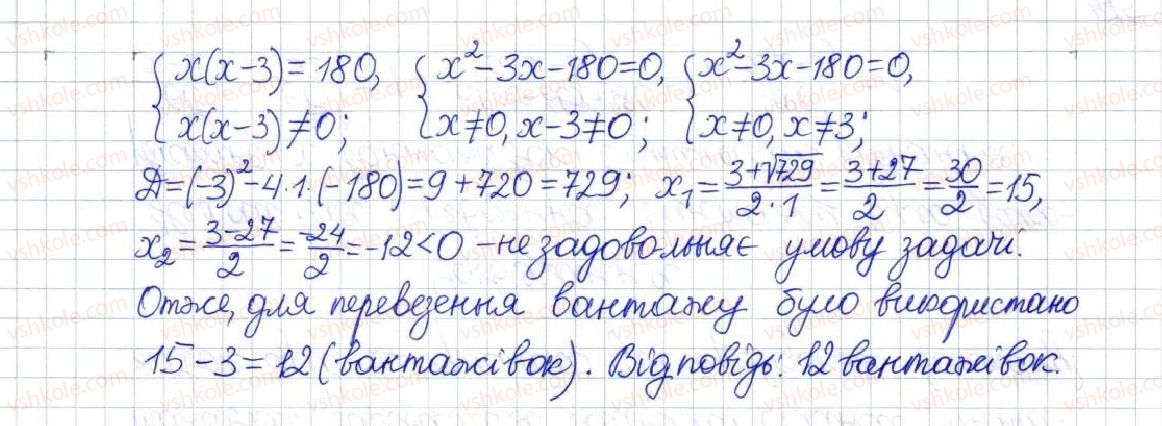 { x(x-3)=180, { x²-3x-180=0, { x²-3x-180=0,
x(x-3)≠0; x≠0, x-3≠0; x≠0, x≠3;
Д=(-3)²-4·1·(-180)=9+720=729; x₁=(3+√729)/(2·1)=(3+27)/2=30/2=15,
x₂=(3-27)/2=-24/2=-12<0 - не задовольняє умову задачі.
Отже, для перевезення вантажу було використано
15-3=12 (вантажівок). Відповідь: 12 вантажівок.